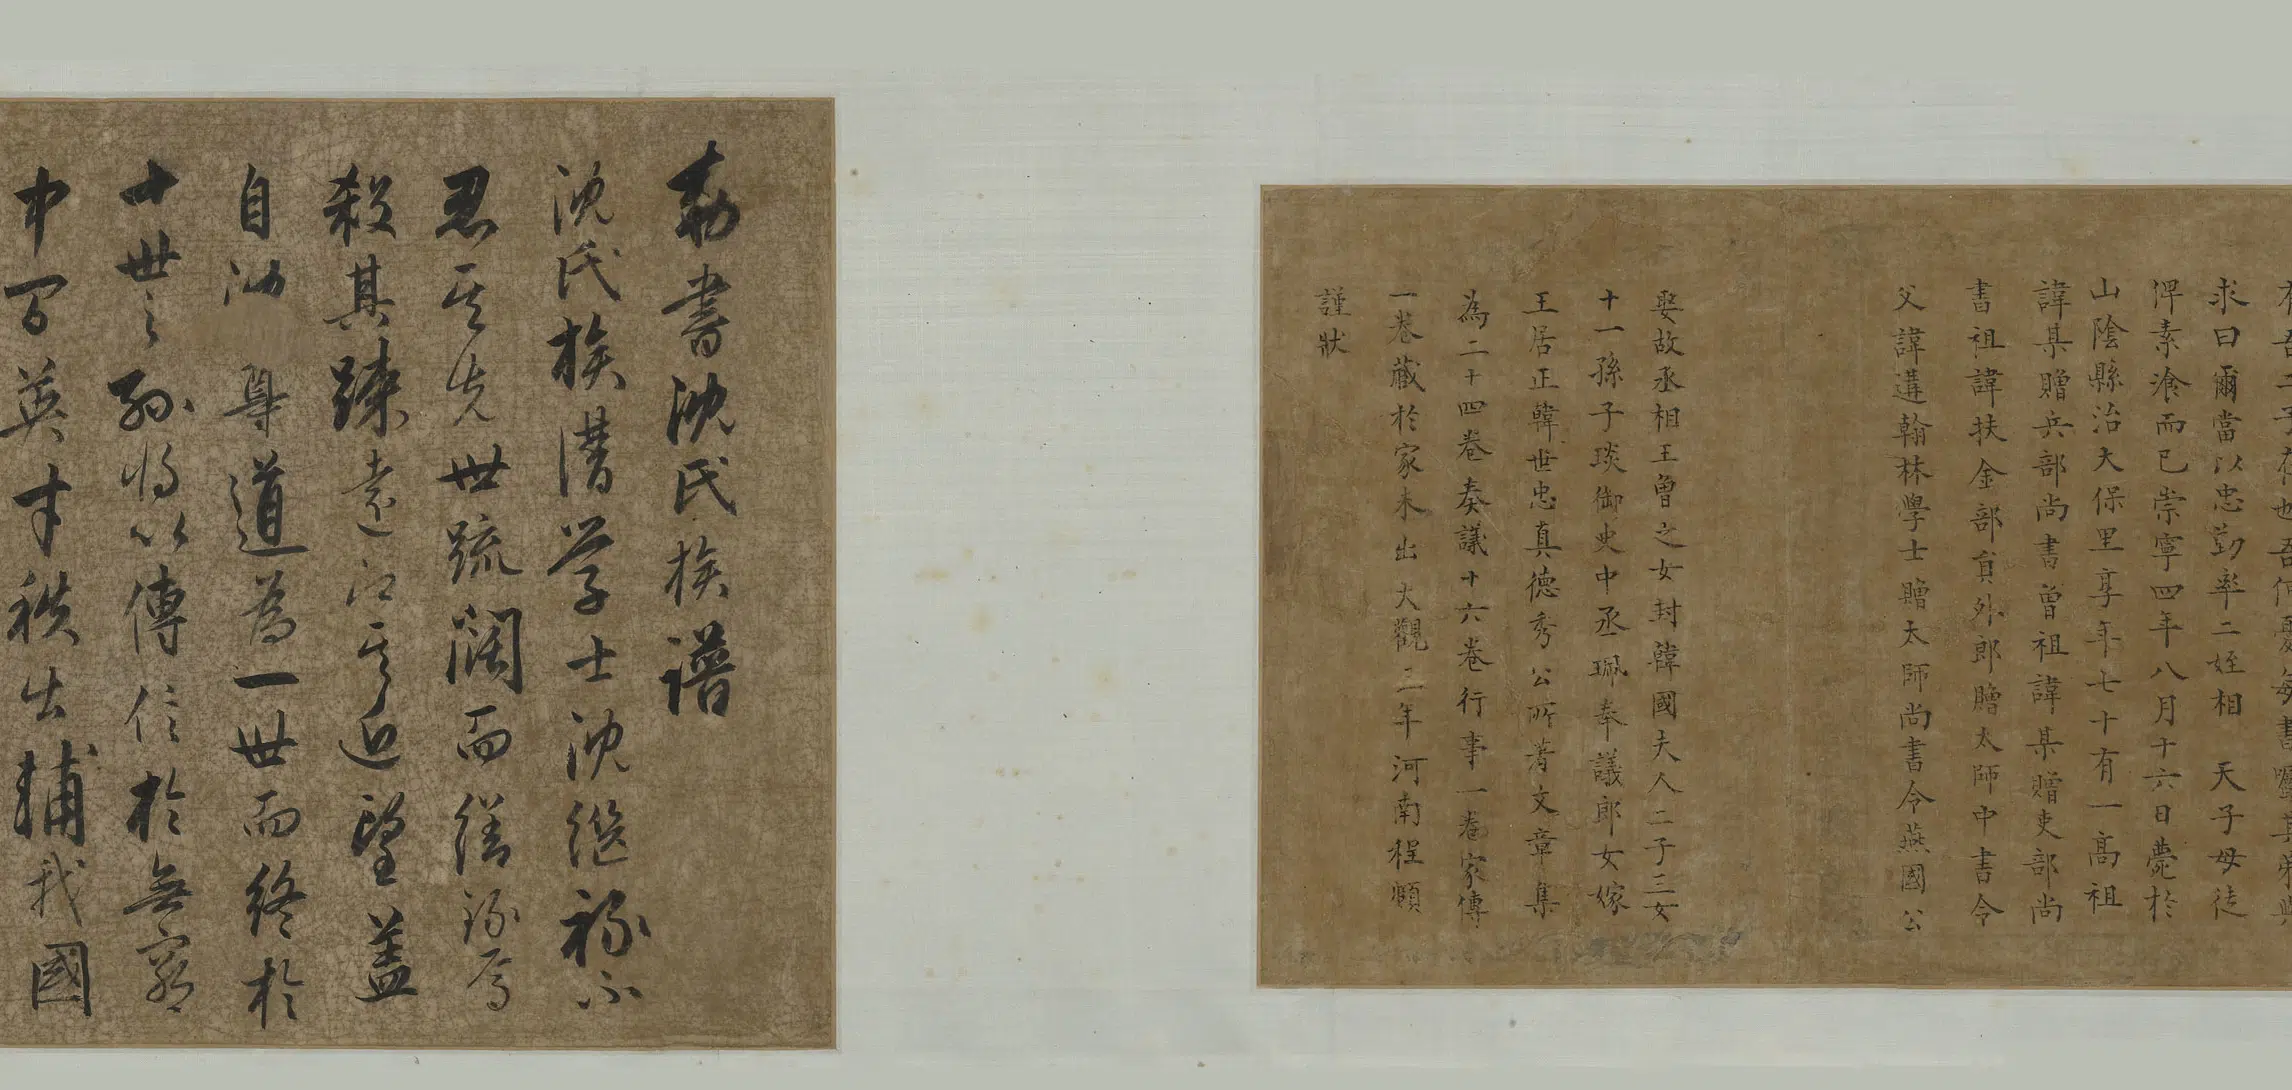 求曰爾當以忠勤率二姪相 天子母徒
俾素湌而已崇寧四年八月十六日薨於
山陰縣治大保里享年七十有一高祖
諱某贈兵部尚書曾祖諱某贈吏部尚
書祖諱扶金部員外郎贈太師中書令
父諱遘翰林學士贈太師尚書令燕國公
娶故丞相王曾之女封韓國夫人二子三女
十一孫子琰御史中丞珮奉議郎女嫁
王居正韓世忠真德秀公所著文章集
為二十四卷奏議十六卷行事一卷家傳
一卷藏於家未出大觀三年河南程頤
謹狀
勅書沈氏族譜
沈氏族譜學士沈繼祿不
忍其先世疏闊而倦
殺其踈遠江其迫望蓋
自 尋道為一世而終於
十世之孫將以傳信於無窮
中間英才秩出輔我國